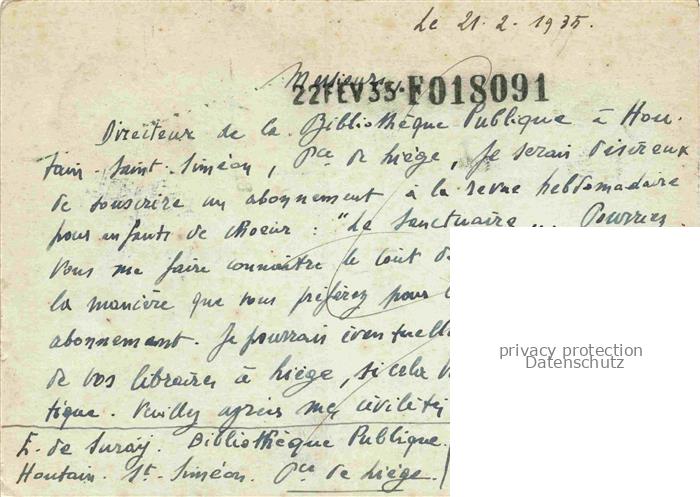 Le 21. 2. 1935.
Messieurs,
22FEV35 F018091
Directeur de la Bibliothèque Publique à Hou-
tain-Saint-Siméon, Pce de Liège, je serais désireux
de souscrire un abonnement à la revue hebdomadaire
pour enfants de choeur : "Le Sanctuaire". Pourriez
vous me faire connaître le coût
la manière que vous préférez pour
abonnement. Je pourrais
de vos libraires à Liège, si cela
tique. Veuillez agréer mes civilités
privacy protection
Datenschutz
E. de Suray. Bibliothèque Publique.
Houtain-St-Siméon. Pce de Liège.